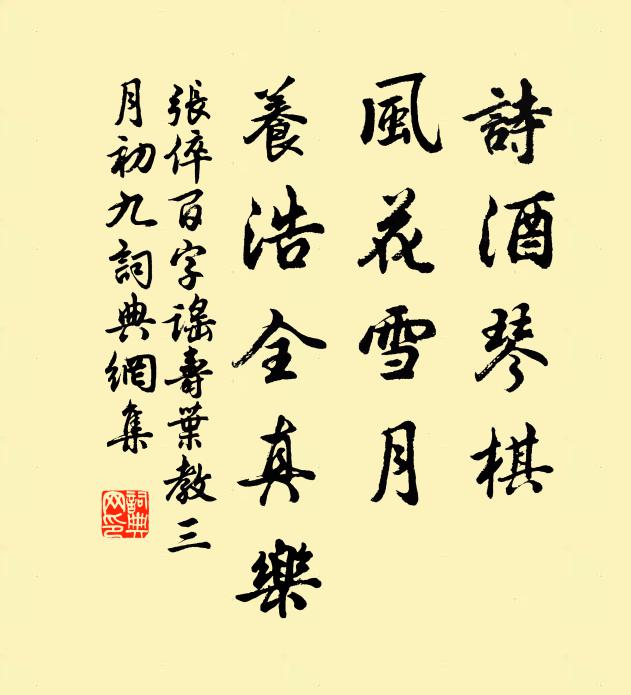 詩酒琴棋
風花雪月
養浩全真樂
張倅百字謠壽葉教三
月初九詞典網集
詞典
网印